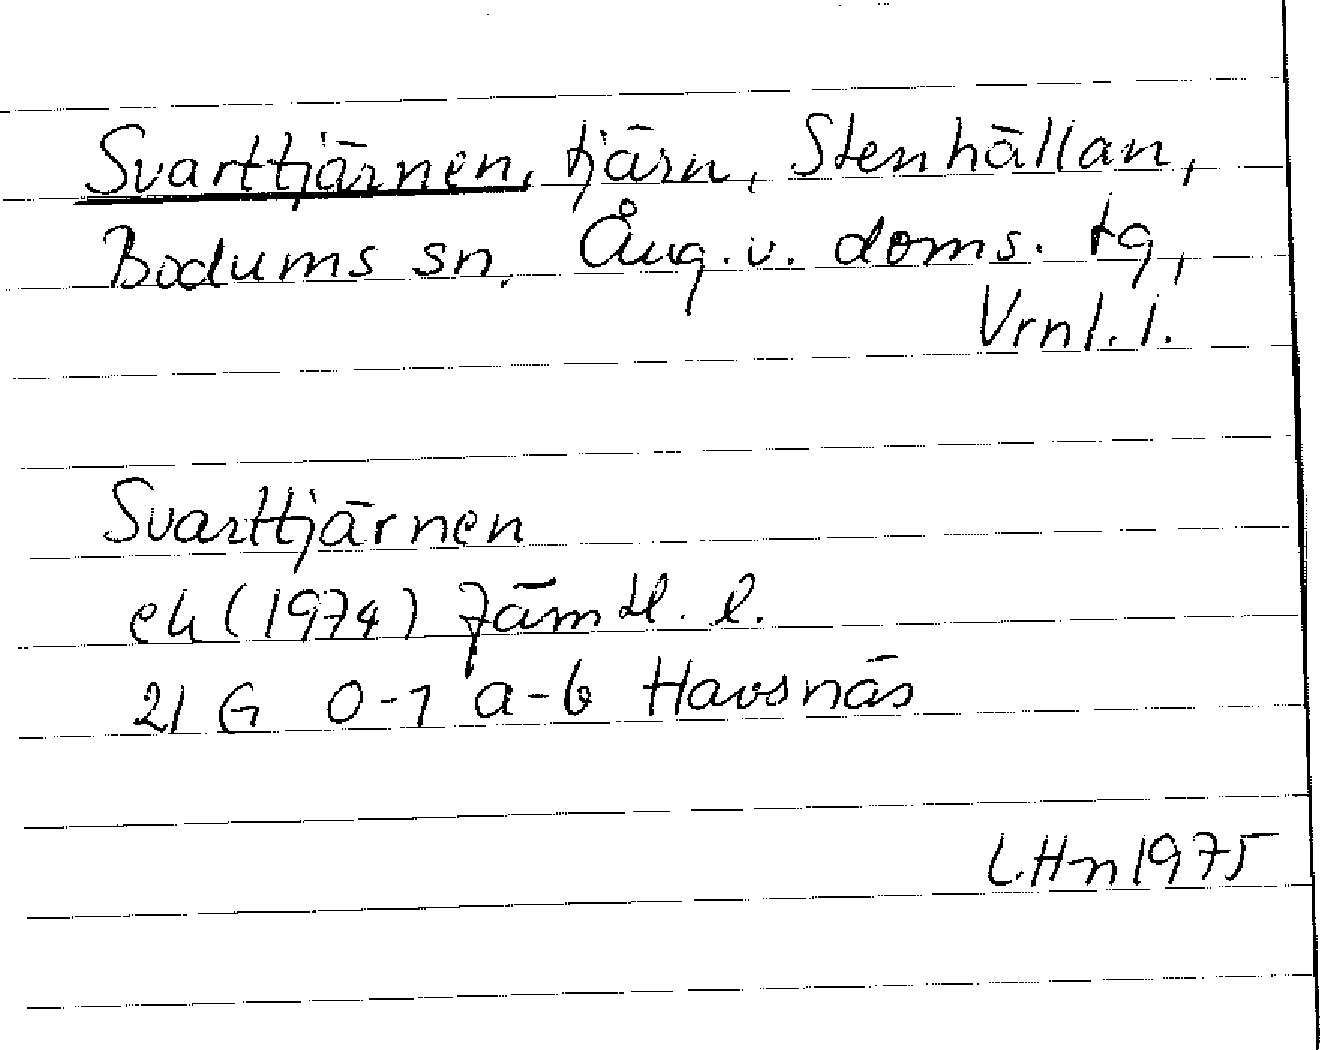 Svarttjärnen, tjärn, Stenhällan,
Bodums sn, Ång. v. doms. tg,
Vrnl. l.
Svarttjärnen
ek (1974) Jämtl. l.
21 G 0-1 a-b Havsnäs
L.Hn 1975